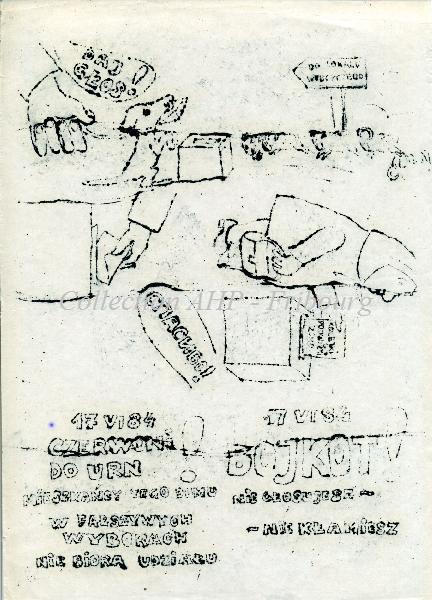 DAJ
GŁOS!
DO LOKALU
WYBORCZEGO
Collection AHP - Fribourg
СПАСИБО!
17 VI 84
CZERWONI!
DO URN
MIESZKAŃCY TEGO DOMU
W FAŁSZYWYCH
WYBORACH
NIE BIORĄ UDZIAŁU
17 VI 84
BOJKOT!
NIE GŁOSUJESZ -
- NIE KŁAMIESZ